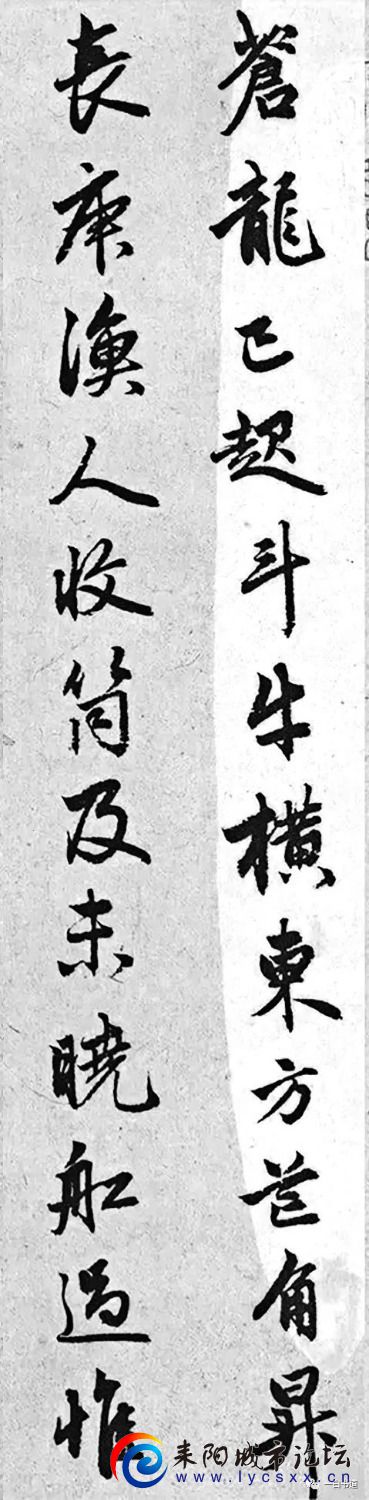 蒼龍已起斗牛橫東方芒角昇
長庚漁人收筒及未曉船過惟
耒阳城市论坛
www.lycsxx.cn